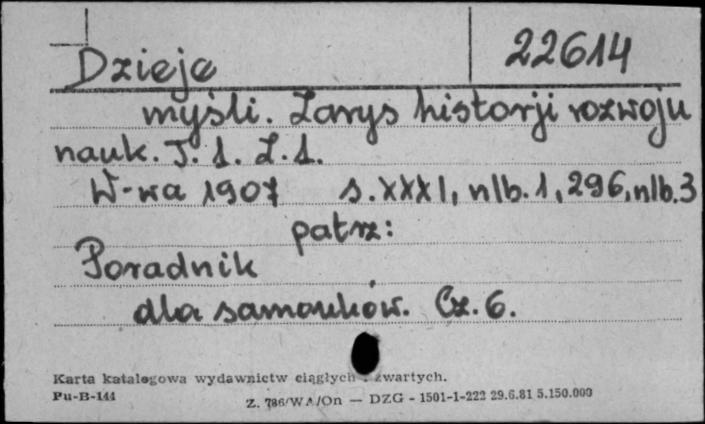 Dzieje 22614
myśli. Zarys historji rozwoju
nauk. T. 1. Z. 1.
W-wa 1907 s. XXXI, nlb. 1, 296, nlb. 3
patrz:
Poradnik
dla samouków. Cz. 6.
Karta katalogowa wydawnictw ciągłych zwartych.
Pu-B-144 Z. 786/WA/On — DZG - 1501-1-222 29.6.81 5.150.000